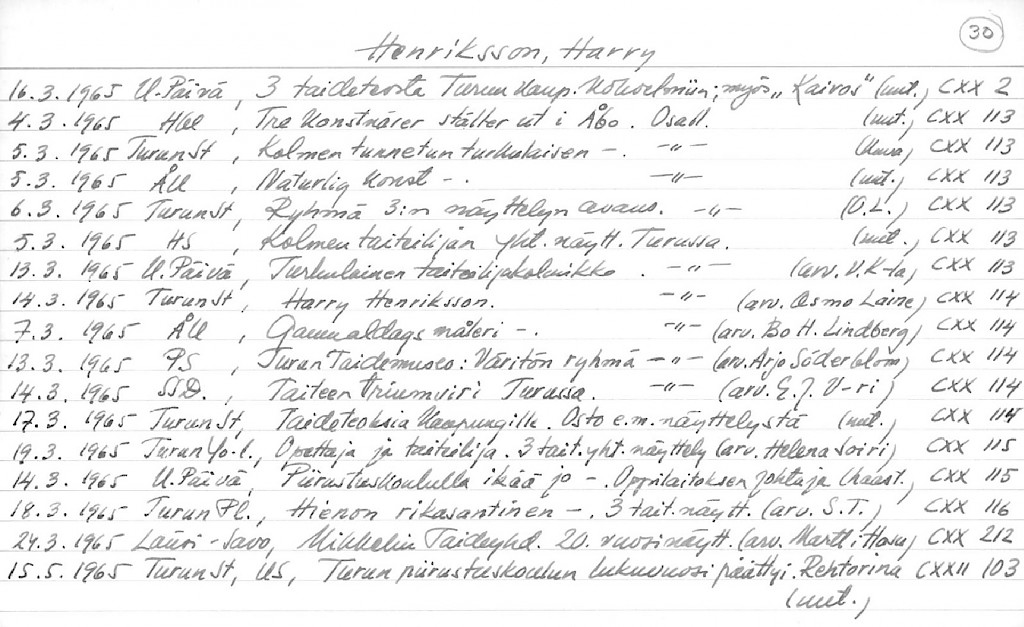 30
Henriksson, Harry
16.3.1965 U.Päivä, 3 taideteosta Turun kaup. kokoelmiin; myös „Kaivos" (uut.) CXX 2
4.3.1965 Hbl, Tre konstnärer ställer ut i Åbo. Osall. (uut.) CXX 113
5.3.1965 TurunSt, Kolmen tunnetun turkulaisen -. -"- (kuva) CXX 113
5.3.1965 ÅU, Naturlig konst -. -"- (uut.) CXX 113
6.3.1965 TurunSt, Ryhmä 3:n näyttelyn avaus. -"- (O.L.) CXX 113
5.3.1965 HS, Kolmen taiteilijan yht. näytt. Turussa. (uut.) CXX 113
13.3.1965 U.Päivä, Turkulainen taiteilijakolmikko. -"- (arv. V.K-la) CXX 113
14.3.1965 TurunSt, Harry Henriksson. -"- (arv. Osmo Laine) CXX 114
7.3.1965 ÅU, Gammaldags måleri -. -"- (arv. Bo H. Lindberg) CXX 114
13.3.1965 PS, Turun Taidemuseo: Väritön ryhmä -"- (arv. Arjo Söderblom) CXX 114
14.3.1965 SSD., Taiteen triumviri Turussa. -"- (arv. E.J. V-ri) CXX 114
17.3.1965 TurunSt, Taideteoksia kaupungille. Osto e.m. näyttelystä (uut.) CXX 114
19.3.1965 TurunYo-l., Opettaja ja taiteilija. 3 tait. yht. näyttely (arv. Helena Soiri) CXX 115
14.3.1965 U.Päivä, Piirustuskoululla ikää jo -. Oppilaitoksen johtaja (haast.) CXX 115
18.3.1965 TurunPl., Hienon rikasantinen -. 3 tait. näytt. (arv. S.T.) CXX 116
24.3.1965 Länsi-Savo, Mikkelin Taideyhd. 20. vuosinäytt. (arv. Martti Hosu) CXX 212
15.5.1965 TurunSt, US, Turun piirustuskoulun lukuvuosi päättyi. Rehtorina CXXII 103
(uut.)